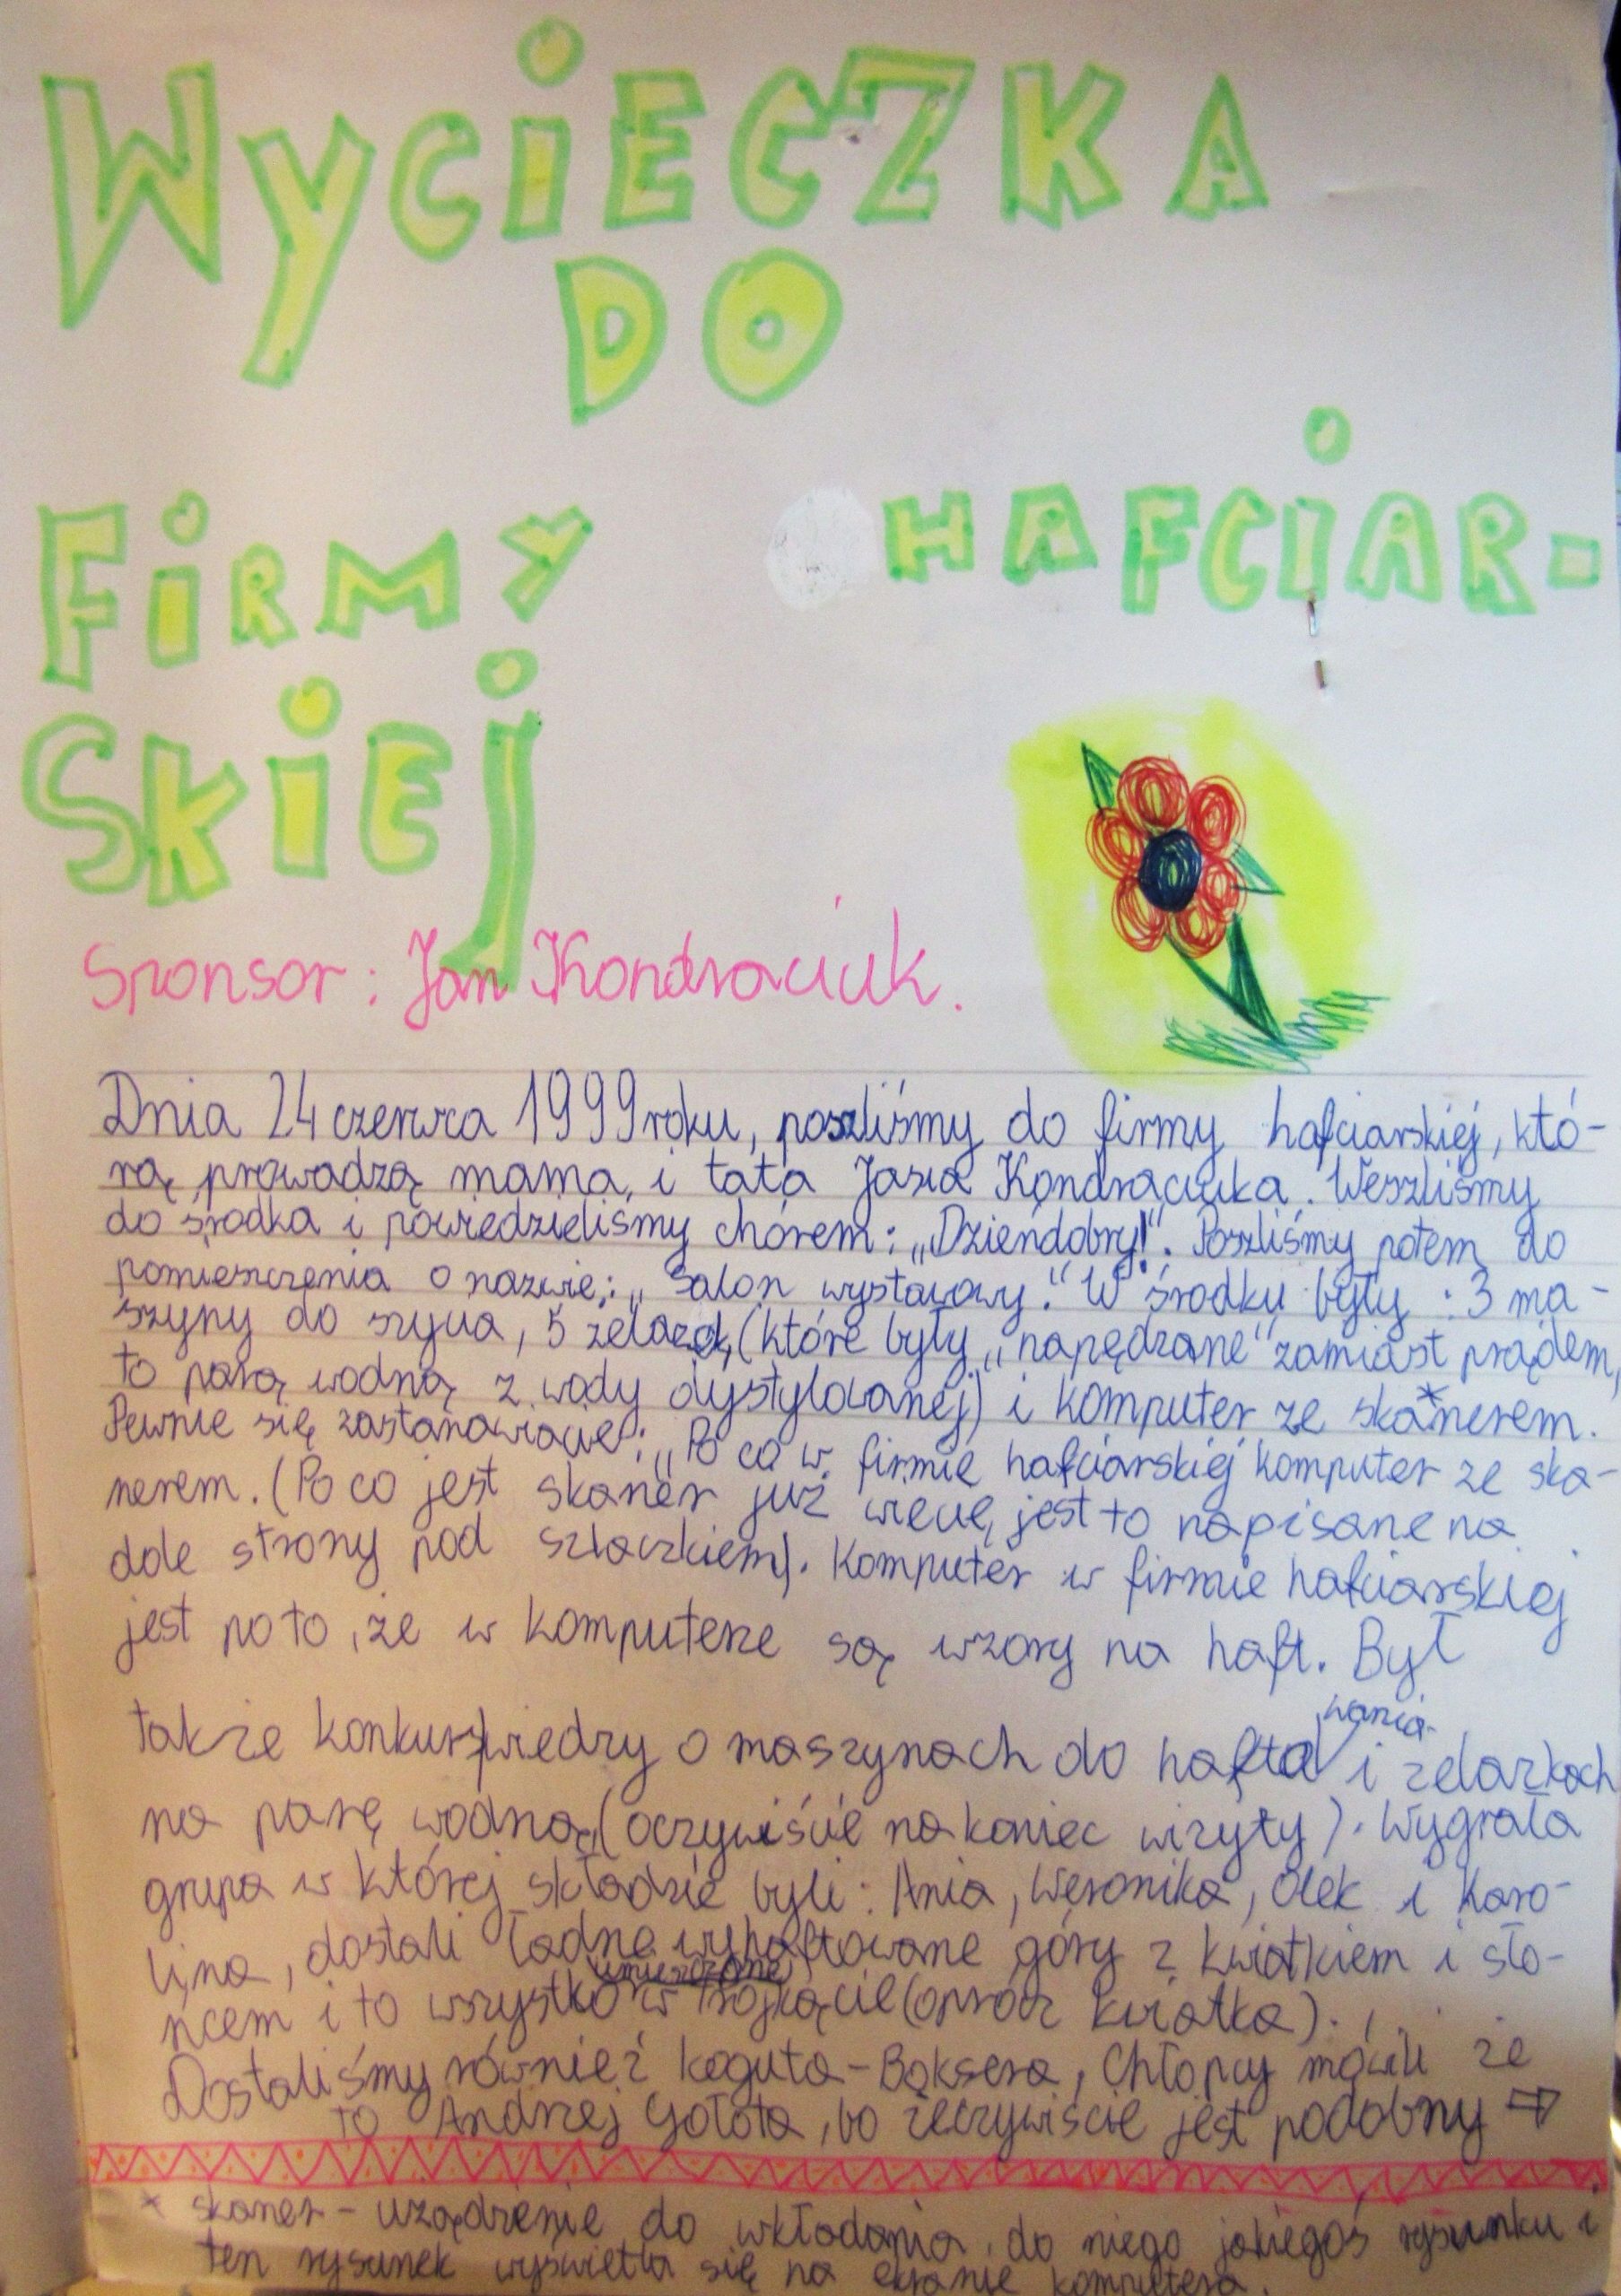 WYCIECZKA
DO
FIRMY HAFCIAR-
SKIEJ
Sponsor: Jan Kondraciuk.
Dnia 24 czerwca 1999 roku, poszliśmy do firmy hafciarskiej, któ-
rą prowadzą mama, i tata Jasia Kondraciuka. Weszliśmy
do środka i powiedzieliśmy chórem: „Dzieńdobry!". Poszliśmy potem do
pomieszczenia o nazwie: „Salon wystawowy." W środku były: 3 ma-
szyny do szycia, 5 żelazek, (które były „napędzane" zamiast prądem,
to parą wodną z wody dystylowanej) i komputer ze ska*nerem.
Pewnie się zastanawiacie: „Po co w firmie hafciarskiej komputer ze ska-
nerem. (Po co jest skaner już wiecie, jest to napisane na
dole strony pod szlaczkiem). Komputer w firmie hafciarskiej
jest po to, że w komputerze są wzory na haft. Był
także konkurs wiedzy o maszynach do haftowania i żelazkach
na parę wodną, (oczywiście na koniec wizyty). Wygrała
grupa w której składzie byli: Ania, Weronika, Olek i Karo-
lina, dostali ładne wyhaftowane góry z kwiatkiem i sło-
ńcem i to wszystko umieszczone w trójkącie (oprócz kwiatka).
Dostaliśmy również koguta-Boksera, Chłopcy mówili że
to Andrzej Gołota, bo rzeczywiście jest podobny ⇨
* skaner - urządzenie do wkładania, do niego jakiegoś rysunku i
ten rysunek wyświetla się na ekranie komputera.